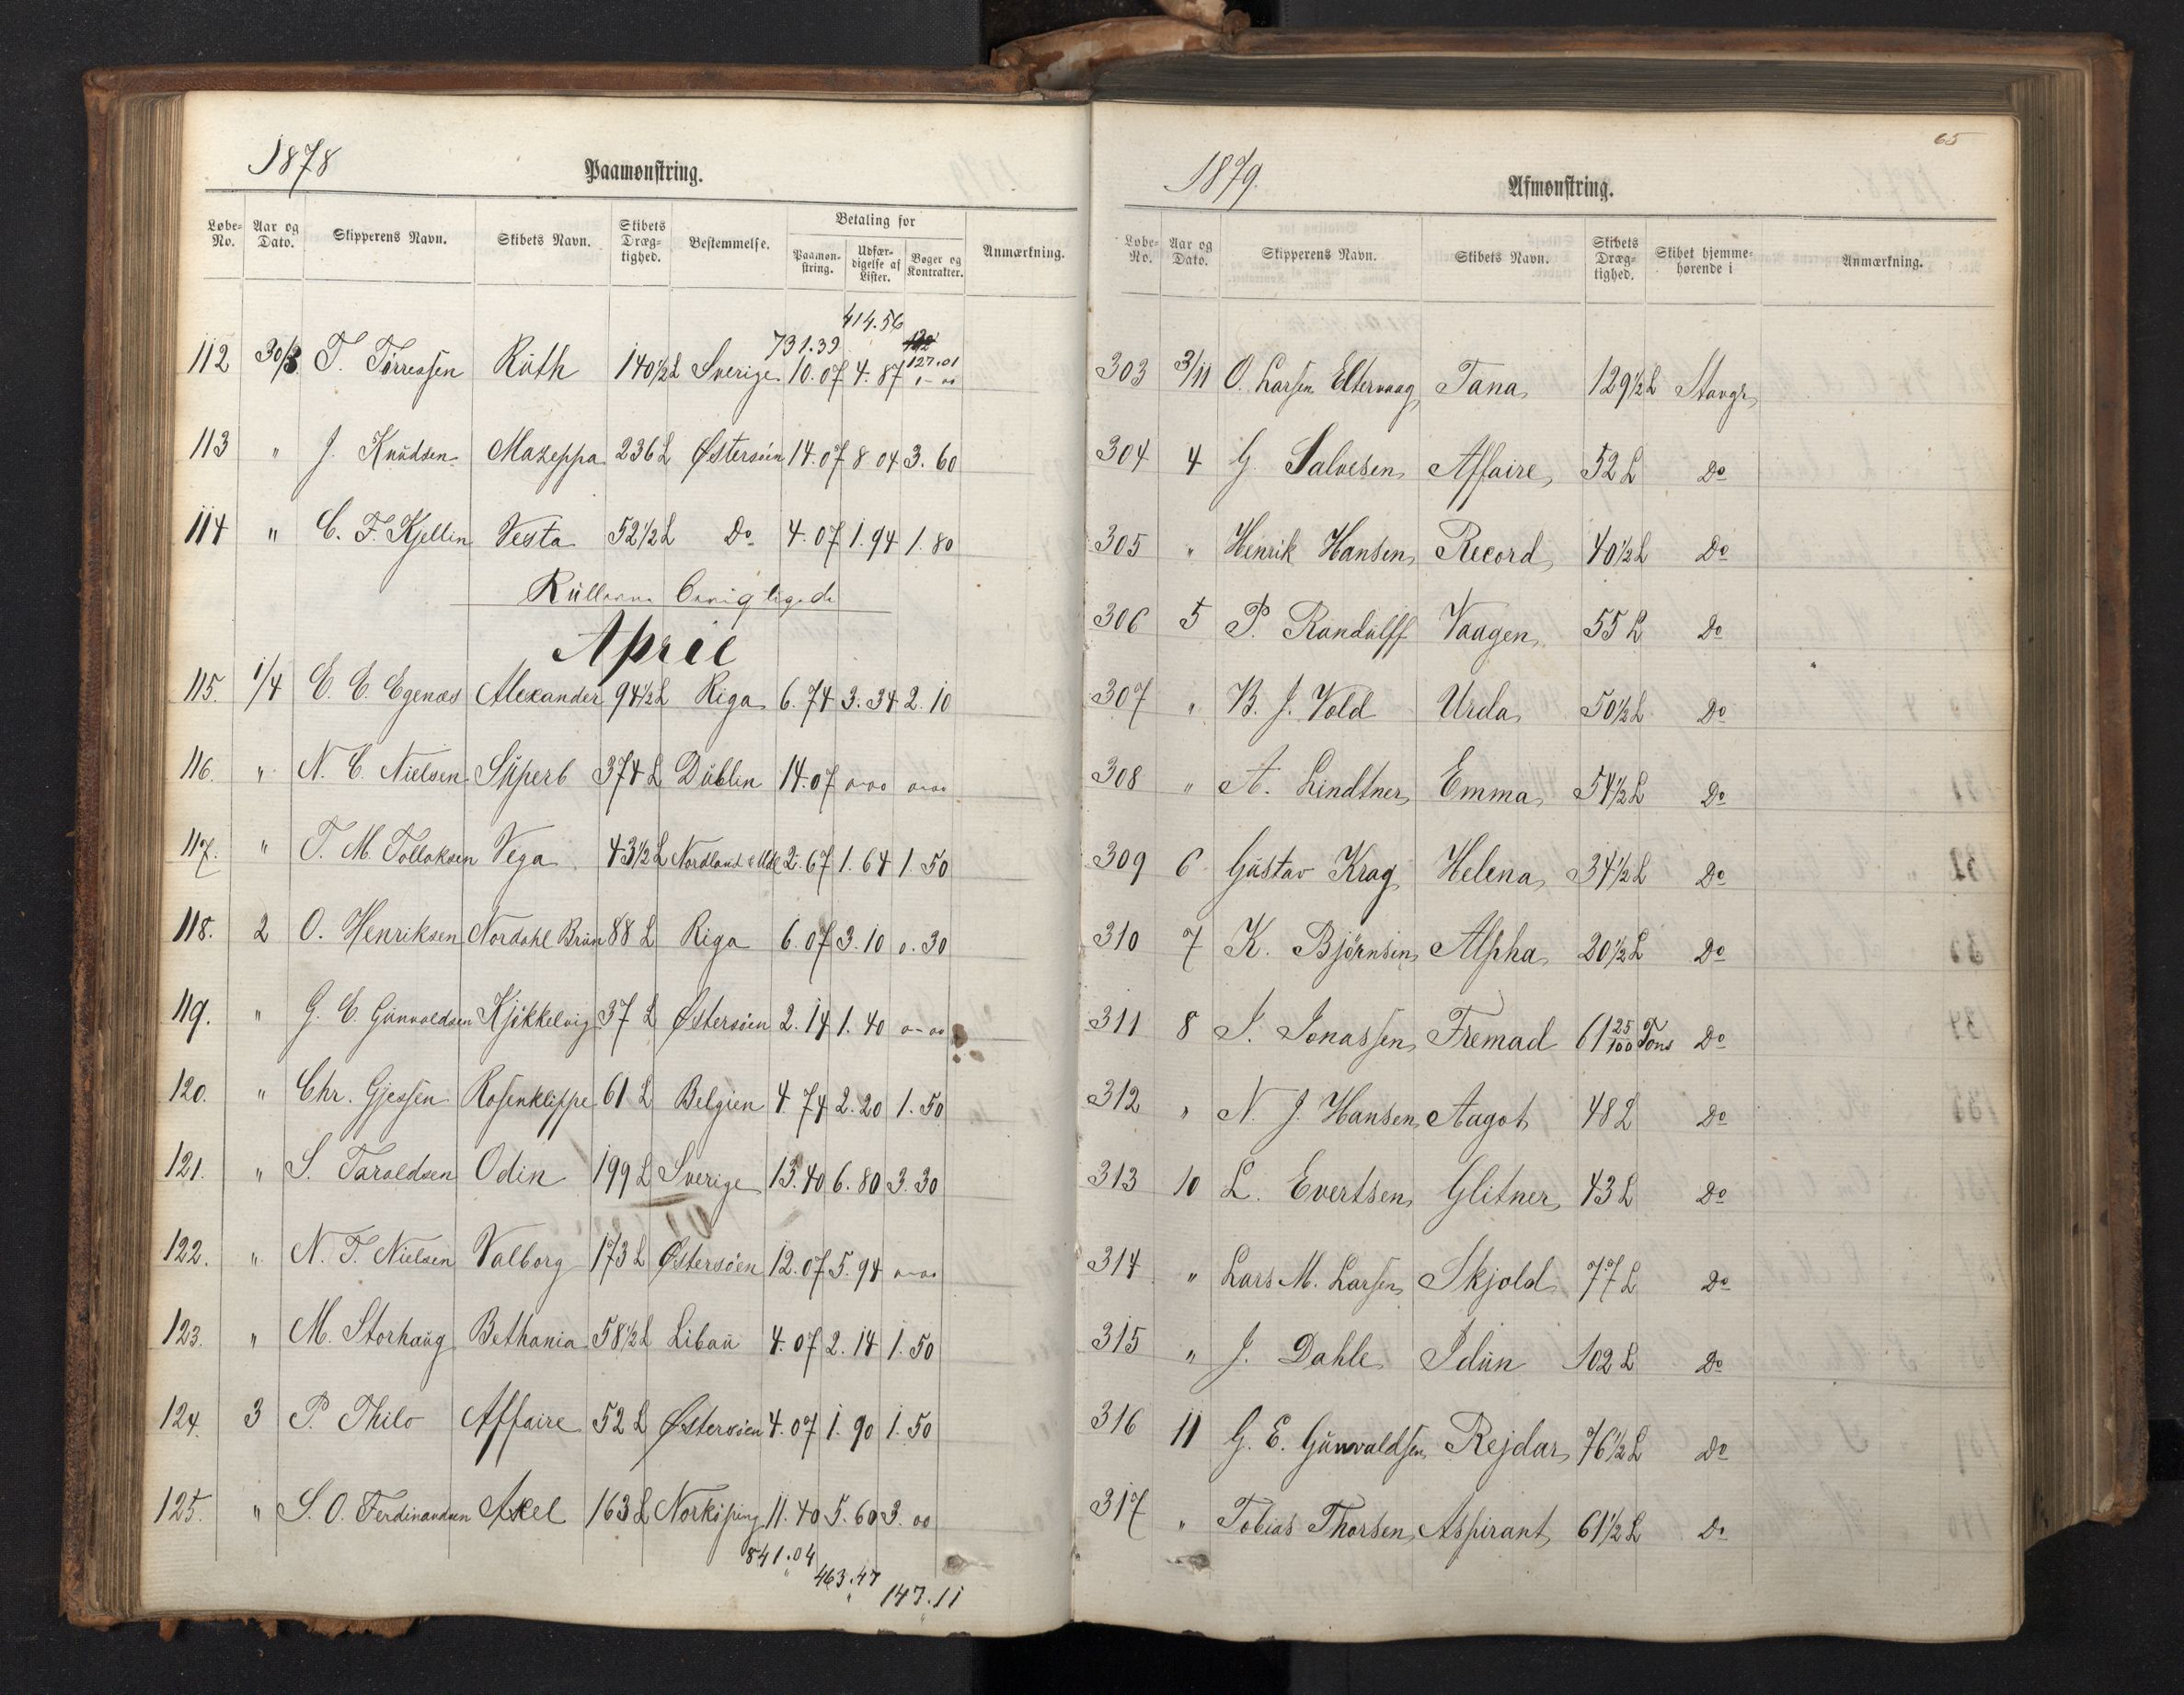 1878
Paamønstring.
Løbe-No. Aar og Dato. Skipperens Navn. Skibets Navn. Skibets Dræg-tighed. Bestemmelse. Betaling for Paamøn-string. Udfær-digelse af Lister. Bøger og Kontrakter. Anmærkning.
731.39 414.56 127.01
112 30/3 T. Tørressen Ruth 140½ L Sverige 10.07 4.87 "-"
113 " J. Knudsen Mazeppa 236 L Østersøen 14.07 8 04 3.60
114 " C. F. Kjellin Vesta 52½ L Do 4.07 1.94 1.80
April
115. 1/4 E. E. Egenæs Alexander 94½ L Riga 6.74 3.34 2.10
116. " N. C. Nielsen Superb 374 L Dublin 14.07 0-00 0-00
117. " T. M. Tollaksen Vega 43½ L Nordland 2.67 1.64 1.50
118. 2 O. Henriksen Nordahl Brun 88 L Riga 6.07 3.10 0.30
119. " G. E. Gunvaldsen Kjøkkelvig 37 L Østersøen 2.14 1.40 0-00
120. " Chr. Gjessen Rosenklippe 61 L Belgien 4.74 2.20 1.50
121. " S. Taraldsen Odin 199 L Sverige 13.40 6.80 3.30
122. " N. T. Nielsen Valborg 173 L Østersøen 12.07 5.94 0-00
123. " M. Storhaug Bethania 58½ L Libau 4.07 2.14 1.50
124. 3 P. Thilo Affaire 52 L Østersøen 4.07 1.90 1.50
125. " S. O. Ferdinandsen Axel 163 L Norkøping 11.40 5.60 3.00
841.04
463.47
147.11
65
1879.
Afmønstring.
Løbe-No. Aar og Dato. Skipperens Navn. Skibets Navn. Skibets Dræg-tighed. Skibet hjemme-hørende i Anmærkning.
303 3/11 O. Larsen Eltervaag Tana 129½ L Stavgr
304 4 G. Salvesen Affaire 52 L Do
305 " Henrik Hansen Record 40½ L Do
306 5 P. Randulff Vaagen 55 L Do
307 " B. J. Vold Urda 50½ L Do
308 " A. Lindtner Emma 54½ L Do
309 6 Gustav Krag Helena 34½ L Do
310 7 K. Bjørnsen Alpha 20½ L Do
311 8 J. Jonassen Fremad 61 25/100 Tons Do
312 " N. J. Hansen Aagot 48 L Do
313 10 L. Evertsen Glitner 43 L Do
314 " Lars M. Larsen Skjold 77 L Do
315 " J. Dahle Idun 102 L Do
316 11 G. E. Gunvaldsen Rejdar 76½ L Do
317 " Tobias Thorsen Aspirant 61½ L Do